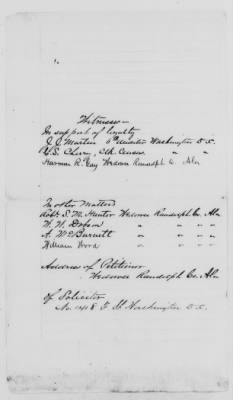 Witnesses
In support of loyalty
J. J. Martin 6th Auditor Washington D.C.
Clk. Census " "
R. Gay Wedowee Randolph Co. Ala
In other Matters
S. M. Hunter Wedowee Randolph Co. Ala
W. W. Dobson " " "
A. W. Burnett " " "
William Wood " " "
Address of Petitioner
Wedowee Randolph Co. Ala
of Solicitor
No. 1418 F St Washington D.C.